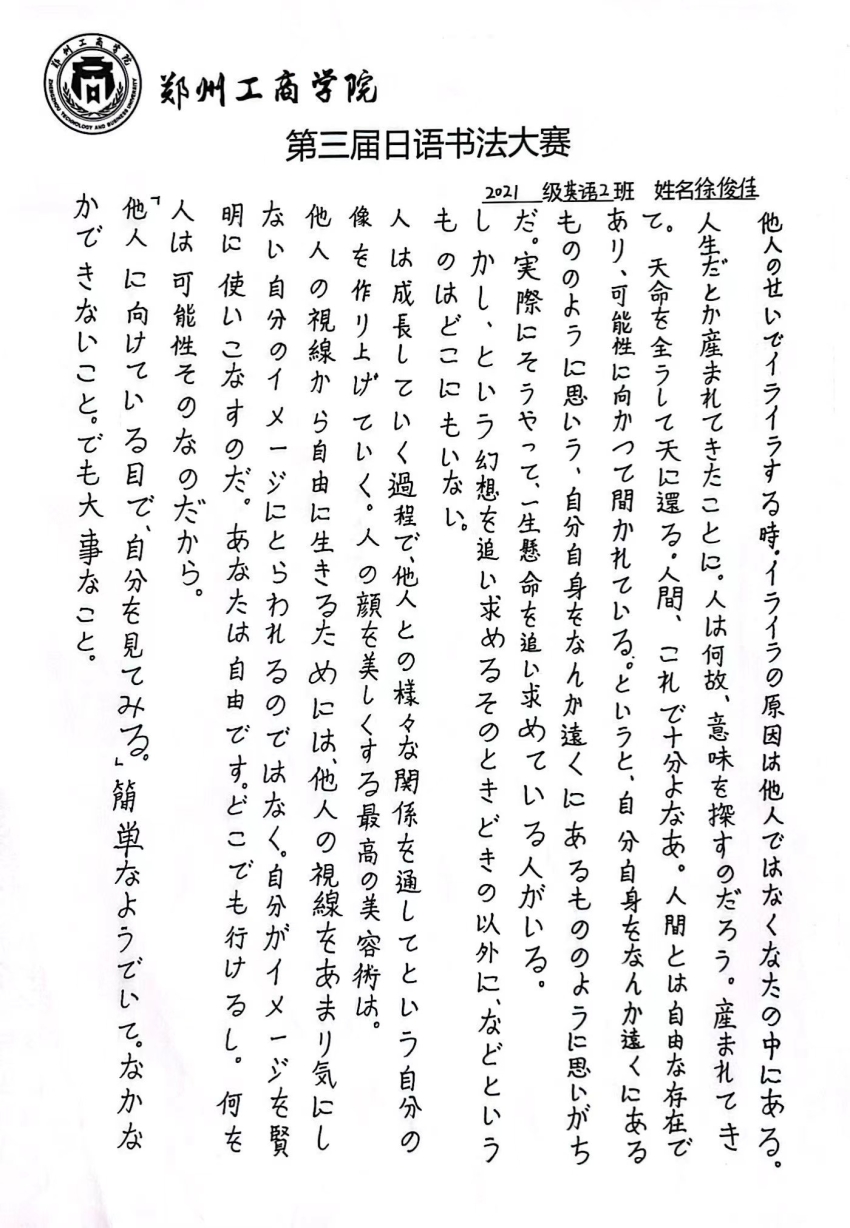 郑州工商学院
ZHENGZHOU TECHNOLOGY AND BUSINESS UNIVERSITY
郑州工商学院
第三届日语书法大赛
2021 级英语2班 姓名徐俊佳
他人のせいでイライラする時。イライラの原因は他人ではなくなたの中にある。
人生だとか産まれてきたことに。人は何故、意味を探すのだろう。産まれてき
て。天命を全うして天に還る。人間、これで十分よなあ。人間とは自由な存在で
あり、可能性に向かつて間かれている。というと、自分自身をなんか遠くにある
もののように思いう、自分自身をなんか遠くにあるもののように思いがち
だ。実際にそうやって、一生懸命を追い求めている人がいる。
しかし、という幻想を追い求めるそのときどきの以外に、などという
ものはどこにもいない。
人は成長していく過程で、他人との様々な関係を通してという自分の
像を作り上げていく。人の顔を美しくする最高の美容術は。
他人の視線から自由に生きるためには、他人の視線をあまり気にし
ない自分のイメージにとらわれるのではなく。自分がイメージを賢
明に使いこなすのだ。あなたは自由です。どこでも行けるし。何を
人は可能性そのなのだから。
「他人に向けている目で、自分を見てみる。」簡単なようでいて。なかな
かできないこと。でも大事なこと。